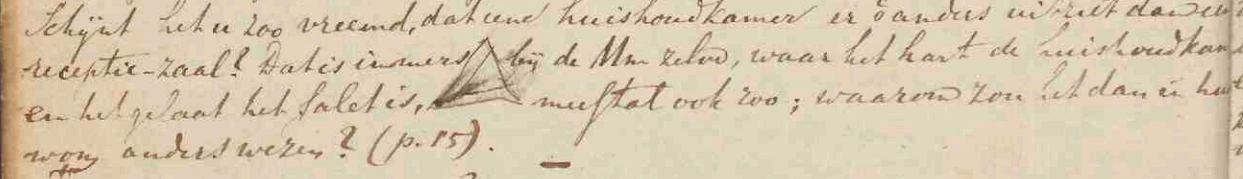 Schijnt het u zoo vreemd, dat eene huishoudkamer er anders uitziet dan een
receptie-zaal? Dat is immers bij de Mm zelve, waar het hart de huishoudkam
en het gelaat het salet is, meestal ook zoo; waarom zou het dan in hu
anders wezen? (p. 15).